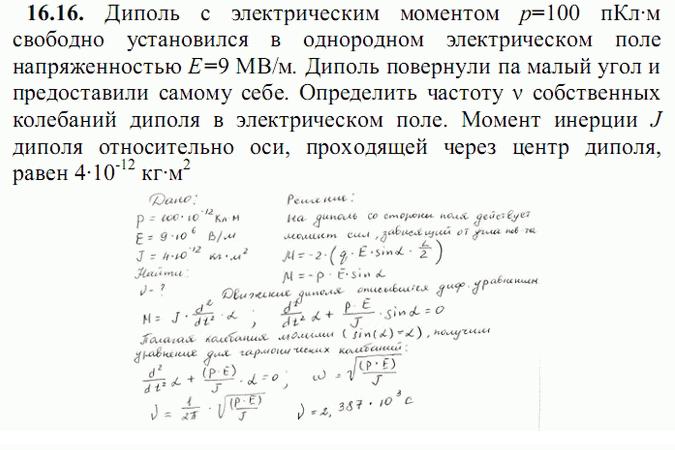 16.16. Диполь с электрическим моментом p=100 пКл·м
свободно установился в однородном электрическом поле
напряженностью E=9 МВ/м. Диполь повернули па малый угол и
предоставили самому себе. Определить частоту ν собственных
колебаний диполя в электрическом поле. Момент инерции J
диполя относительно оси, проходящей через центр диполя,
равен 4·10⁻¹² кг·м²
Дано: Решение:
p = 100·10⁻¹² Кл·м На диполь со стороны поля действует
E = 9·10⁶ В/м момент сил, зависящий от угла пов-та
J = 4·10⁻¹² кг·м² M = -2·(q·E·sinα·L/2)
Найти: M = -p·E·sinα
ν - ? Движение диполя описывается диф. уравнением
M = J·d²/dt²·α ; d²/dt² α + p·E/J · sinα = 0
Полагая колебания малыми (sin(α)=α), получим
уравнение для гармонических колебаний:
d²/dt² α + (p·E)/J · α = 0 ; ω = √((p·E)/J)
ν = 1/2π · √((p·E)/J) ν = 2,387·10³ с